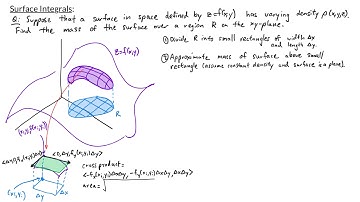 Surface Integrals:
Q: Suppose that a surface in space defined by z=f(x,y) has varying density ρ(x,y,z).
Find the mass of the surface over region R on the xy-plane.
① Divide R into small rectangles of width Δx
and length Δy.
② Approximate mass of surface above small
rectangle (assume constant density and surface is a plane).
z=f(x,y)
R
cross product=
area=√
(xᵢ,yᵢ)
Δy
Δx